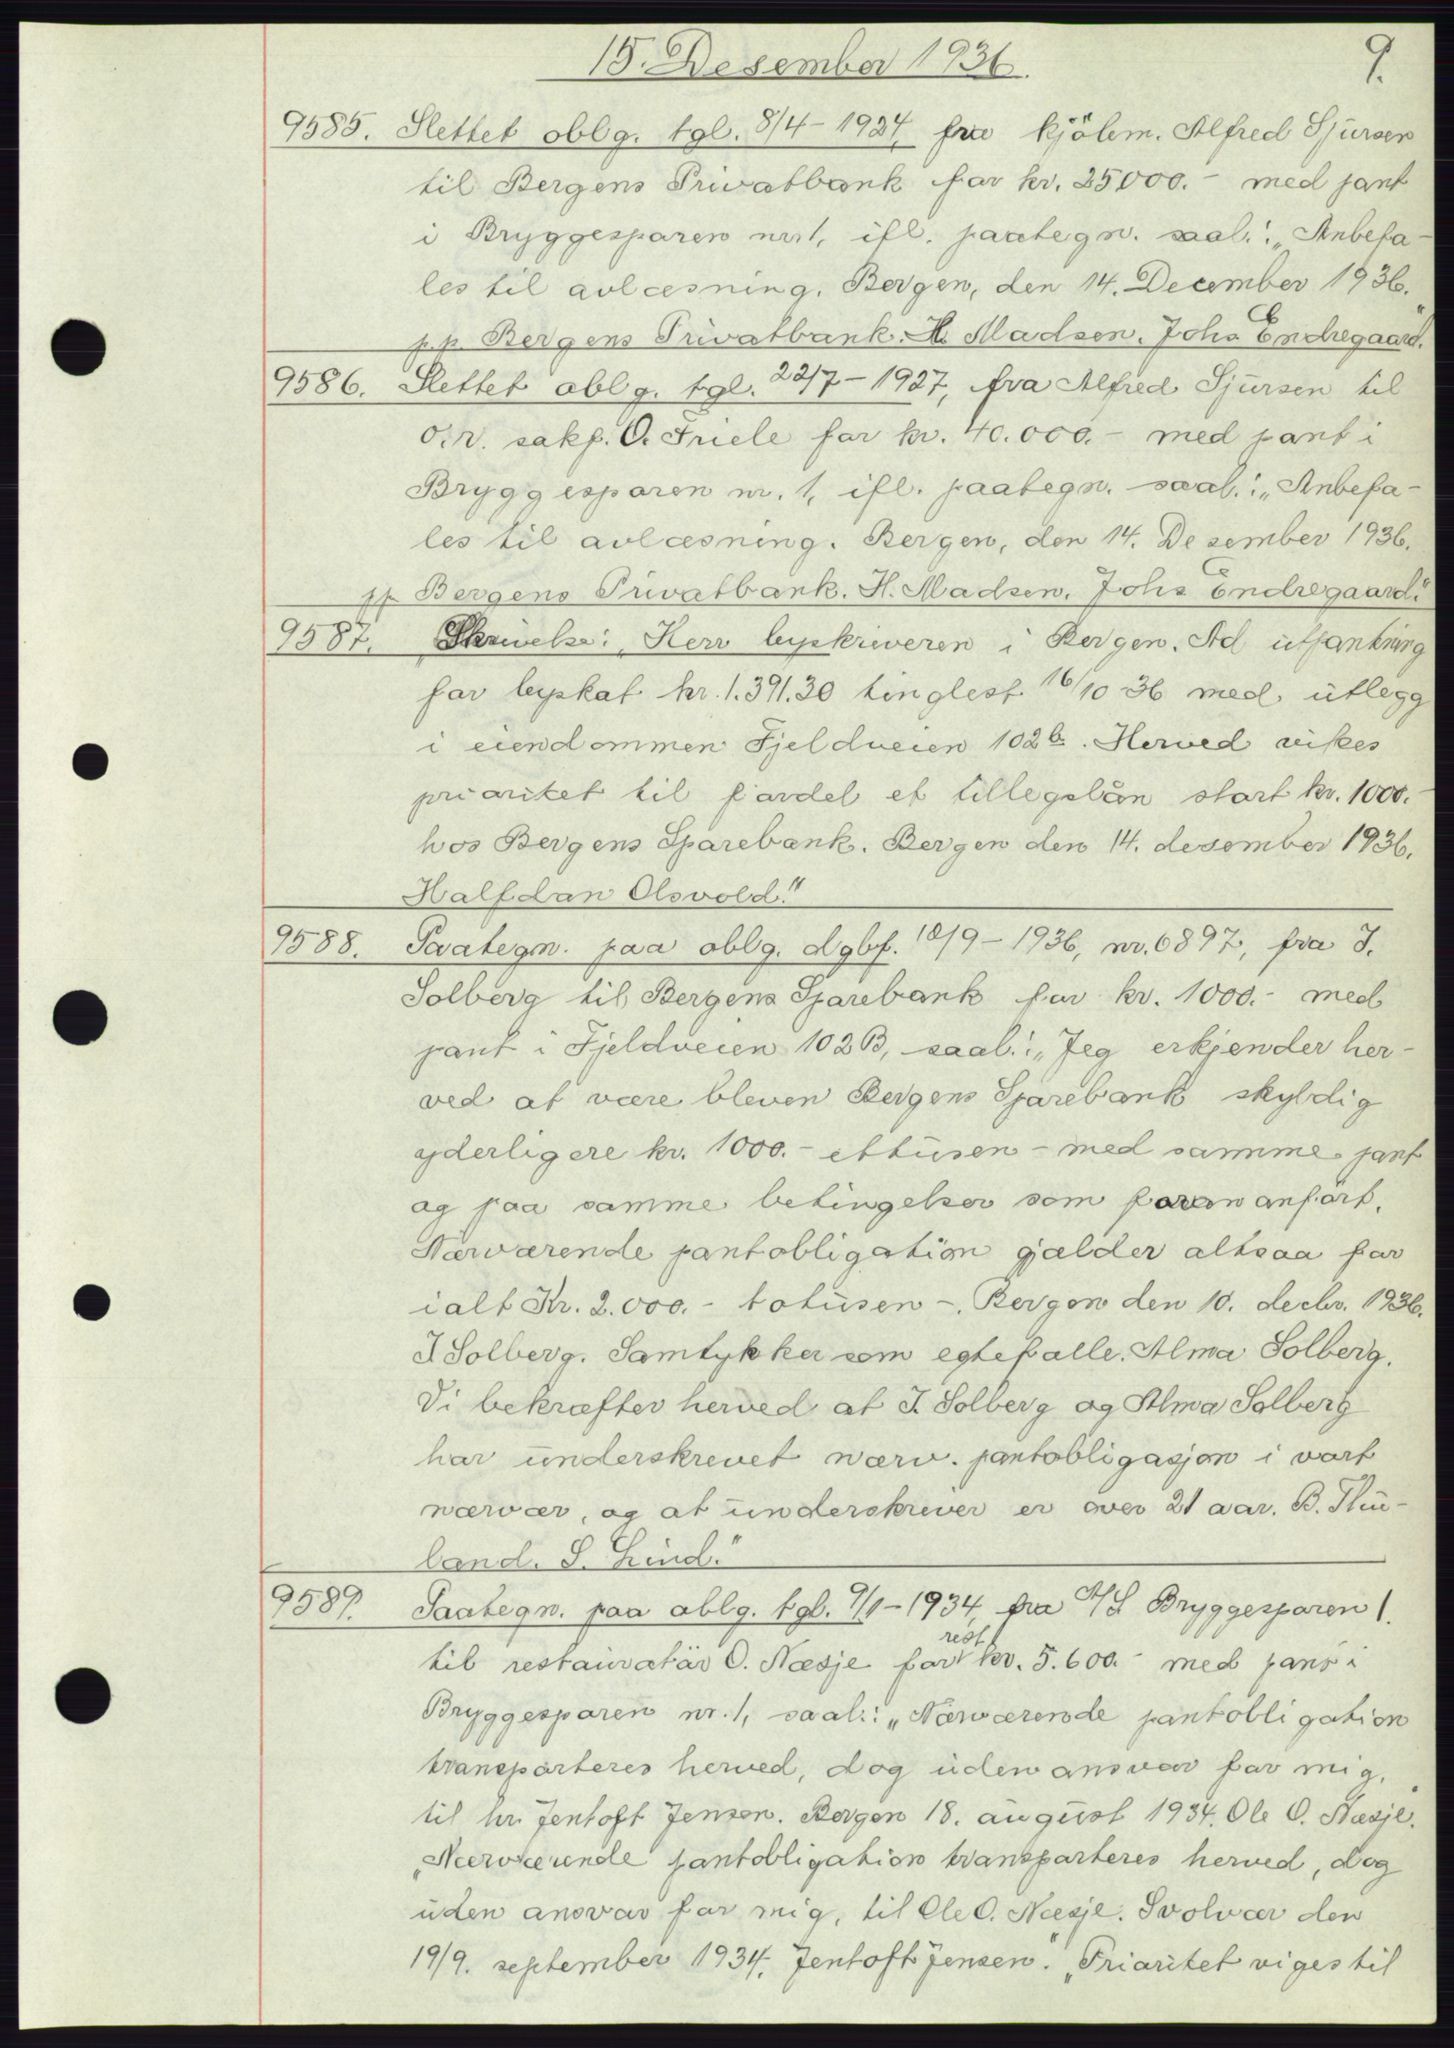 15. Desember 1936.
9.
9585. Slettet oblg. tgl. 8/4-1924, fra kjölem. Alfred Sjursen
til Bergens Privatbank for kr. 25000.- med pant
i Bryggesporen nr. 1, ifl. paategn. saal.: „Anbefa-
les til avlæsning. Bergen, den 14. December 1936.
p.p. Bergens Privatbank. H. Madsen. Johs Endregaard."
9586. Slettet oblg. tgl. 22/7-1927, fra Alfred Sjursen til
o.r. sakf. O. Friele for kr. 40.000.- med pant i
Bryggesporen nr. 1, ifl. paategn. saal.: „Anbefa-
les til avlæsning. Bergen, den 14. Desember 1936.
pp Bergens Privatbank. H. Madsen. Johs Endregaard."
9587. Skrivelse: „Herr byskriveren i Bergen. Ad utpantning
for byskat kr. 1.391.30 tinglest 16/10 36 med utlegg
i eiendommen Fjeldveien 102b. Herved vikes
prioritet til fordel et tillegslån stort kr. 1000.-
hos Bergens Sparebank. Bergen den 14. desember 1936.
Halfdan Olsvold."
9588. Paategn. paa oblg. dgbf. 18/9-1936, nr. 6897, fra J.
Solberg til Bergens Sparebank for kr. 1000.- med
pant i Fjeldveien 102B, saal.: „Jeg erkjender her-
ved at være bleven Bergens Sparebank skyldig
yderligere kr. 1000.- ettusen - med samme pant
og paa samme betingelser som foran anført.
Nærværende pantobligation gjælder altsaa for
ialt Kr. 2.000.- totusen -. Bergen den 10. decbr. 1936.
J Solberg. Samtykker som egtefalle. Alma Solberg.
Vi bekræfter herved at J. Solberg og Alma Solberg
har underskrevet nærv. pantobligasjon i vort
nærvær, og at underskriver er over 21 aar. B. Thu-
land. S. Lind."
9589. Paategn. paa oblg. tgl. 9/1-1934, fra A/S Bryggesporen 1.
til restauratör O. Næsje for rest kr. 5.600.- med pant i
Bryggesporen nr. 1, saal.: „Nærværende pantobligation
transporteres herved, dog uden ansvar for mig,
til hr. Jentoft Jensen. Bergen 18. august 1934. Ole O. Næsje."
„Nærværende pantobligation transporteres herved, dog
uden ansvar for mig, til Ole O. Næsje. Svolvær den
19/9. september 1934. Jentoft Jensen." „Prioritet viges til